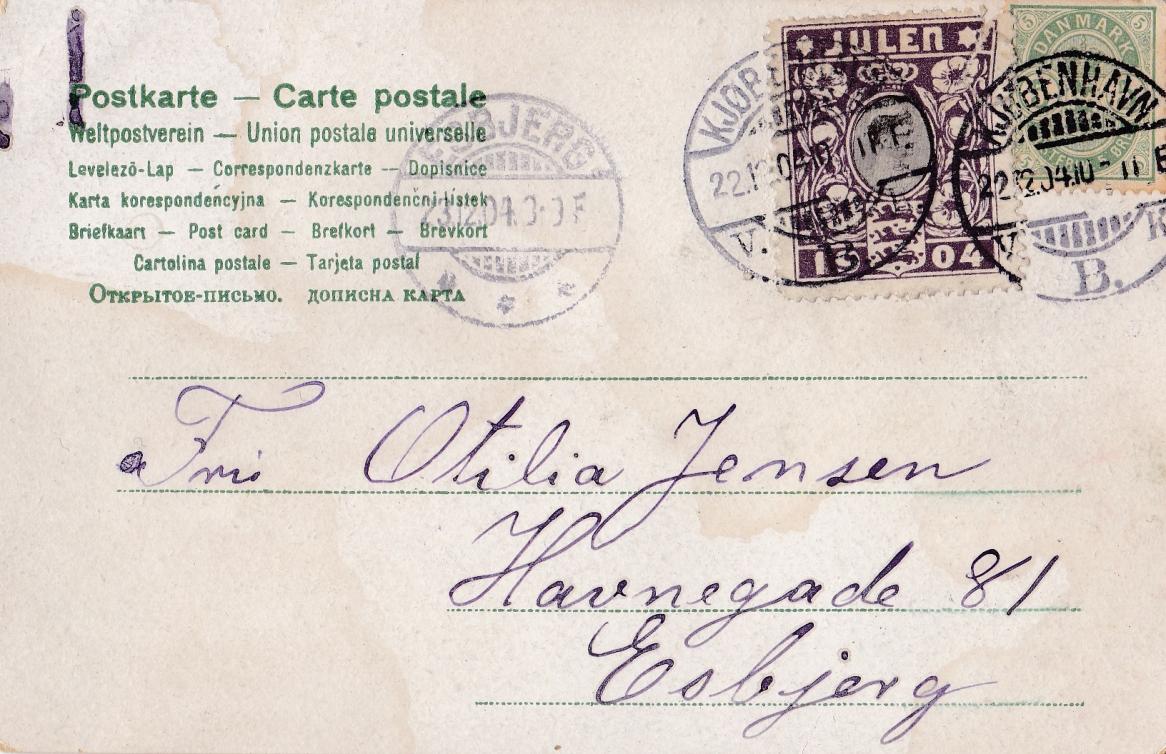 Postkarte — Carte postale
Weltpostverein — Union postale universelle
Levelezö-Lap — Correspondenzkarte — Dopisnice
Karta korespondencyjna — Korespondenčni-listek
Briefkaart — Post card — Brefkort — Brevkort
Cartolina postale — Tarjeta postal
Открытое-письмо. дописна карта
ESBJERG
23.12.04.
JULEN
19 04
KJØB
22.12.04
V.
B.
DANMARK
5 5
KJØBENHAVN
22.12.04.10-11 F
V.
B.
Otilia Jensen
Havnegade 81
Esbjerg